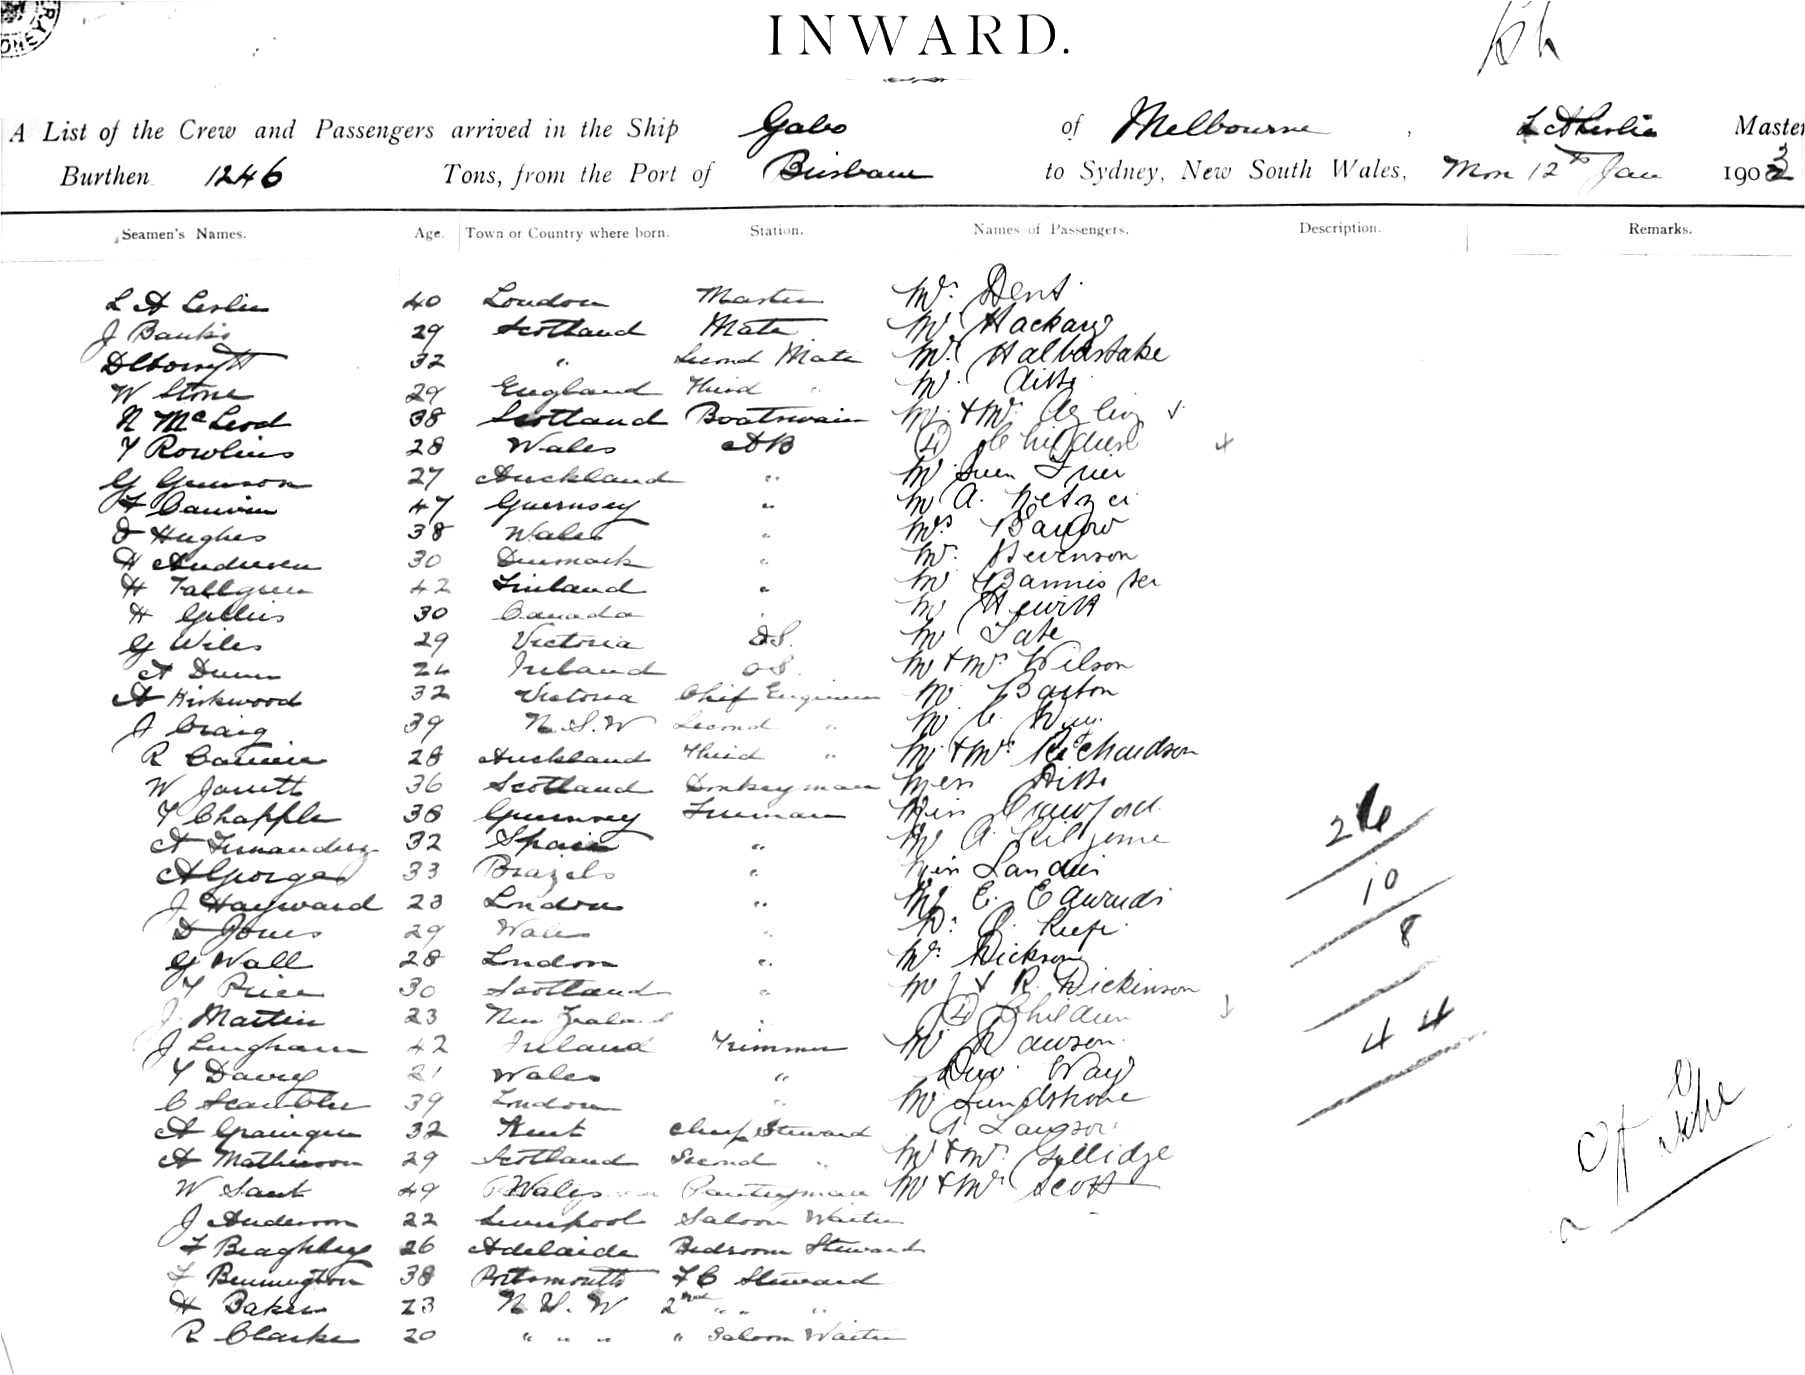 INWARD.
A List of the Crew and Passengers arrived in the Ship Gabo of Melbourne, L A Leslie Master
Burthen 1246 Tons, from the Port of Brisbane to Sydney, New South Wales, Mon 12th Jan 1903
Seamen's Names. Age. Town or Country where born. Station. Names of Passengers. Description. Remarks.
L A Leslie 40 London Master Mr. Dent
J Banks 29 Scotland Mate Mr Hackary
32 " Second Mate Mr. Halbastake
W Stone 29 England Third "
N McLeod 38 Scotland Boatswain
T Rowlins 28 Wales AB (4) Children
G Gunson 27 Auckland "
F Cauvin 47 Guernsey " Mr A.
D Hughes 38 Wales " Mrs Barlow
H Andersen 30 Denmark " Mr. Stevenson
H Tallgren 42 Finland " Mr Bannister
H Gillies 30 Canada " Mr Hewitt
G Wiles 29 Victoria AS. Mr Tate
A Dunn 24 Ireland OS. Mr & Mrs Wilson
A Kirkwood 32 Victoria Chief Engineer Mr Barton
J Craig 39 N.S.W Second " Mr C.
R Carrier 28 Auckland Third " Mr & Mrs Richardson
W Jarrett 36 Scotland Donkeyman Ditto
T Chapple 38 Guernsey Fireman Miss Crawford
A Fernandez 32 Spain " Mr A. Kilgome
A George 33 Brazils " Miss Landers
J Hayward 23 London " Mr E. Edwards
D Jones 29 Wales " Keefe
G Wall 28 London " Mr. Dickson
T Price 30 Scotland " Mr J & R. Dickinson
J Martin 23 New Zealand " (2) Children
J Lingham 42 Ireland Trimmer Mr Dawson
T Davey 21 Wales " Way
C Scambler 39 London " Mr Lundstrone
A Grainger 32 Kent Chief Steward
A Mathieson 29 Scotland Second " Mr & Mrs Gellidge
W Sant 49 Wales Pantryman Mr & Mrs Scott
J Anderson 22 Liverpool Saloon Waiter
F Beaghley 26 Adelaide Bedroom Steward
F Bennington 38 Portsmouth F C Steward
H Baker 23 N.S.W 2nd " " "
R Clarke 20 " " " " Saloon Waiter
26
10
8
44